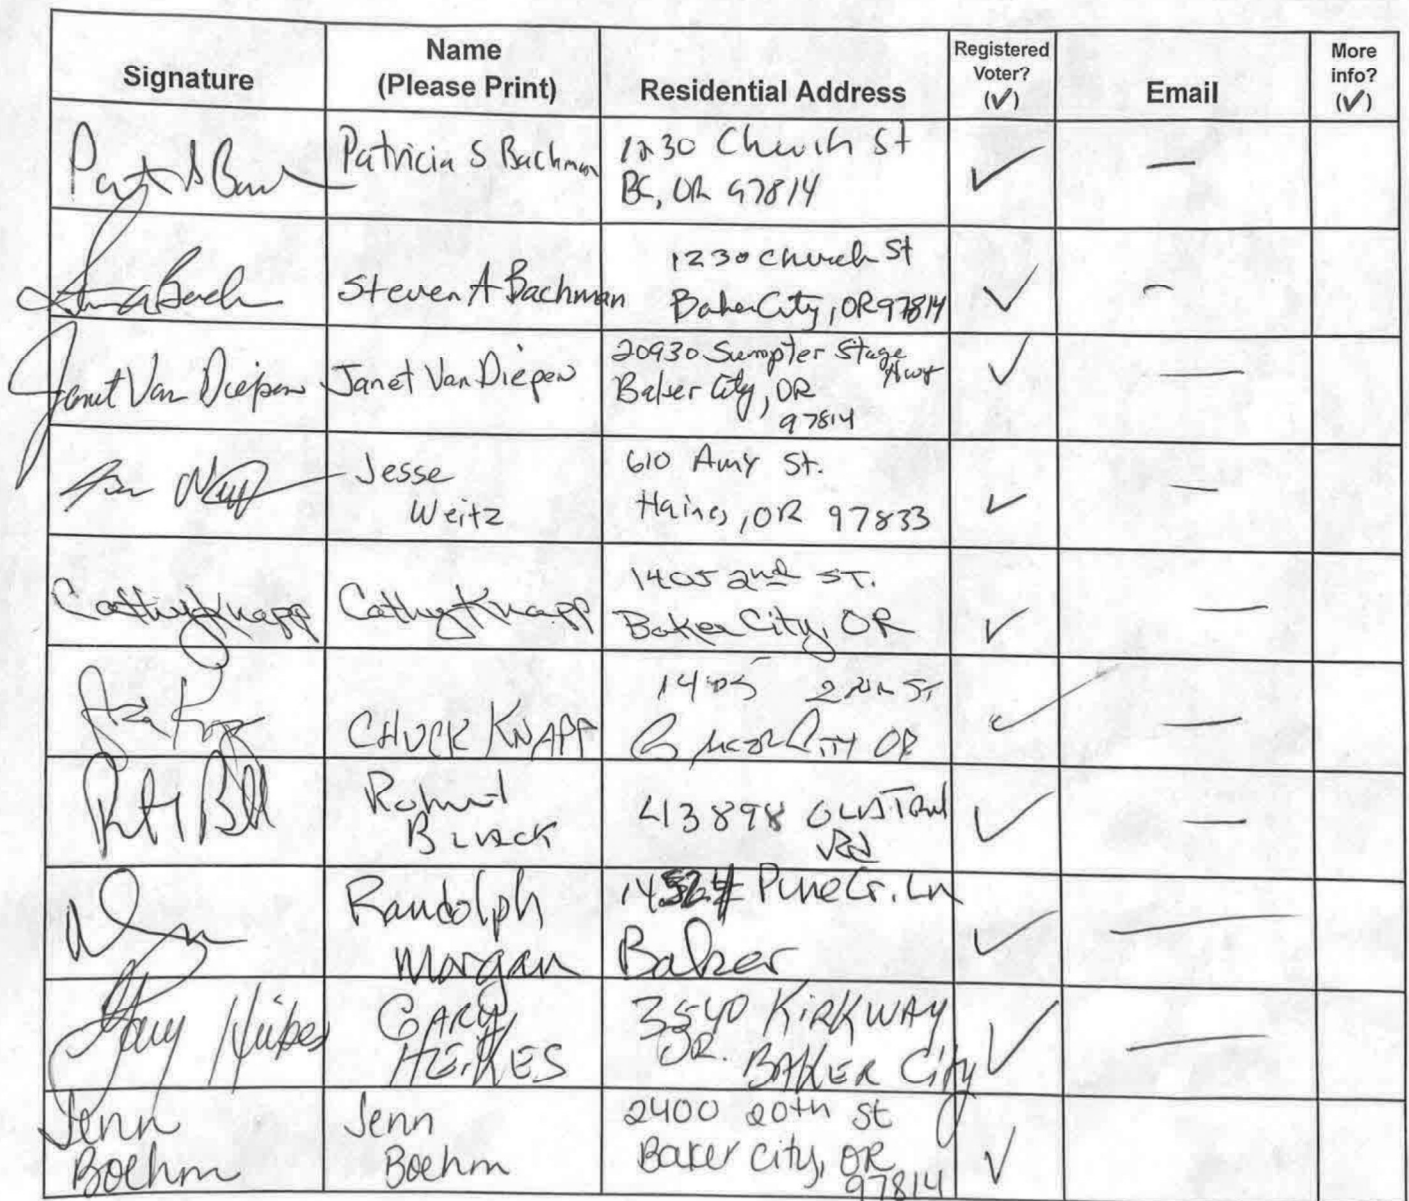 Signature
Name
(Please Print)
Residential Address
Registered
Voter?
(✓)
Email
More
info?
(✓)
Patricia S Bachman
1230 Church St
BC, OR 97814
✓
—
Steven A Bachman
1230 Church St
Baker City, OR 97814
✓
—
Janet Van Diepen
Janet Van Diepen
20930 Sumpter Stage Hwy
Baker City, OR
97814
✓
—
Jesse
Weitz
610 Amy St.
Haines, OR 97833
✓
—
Cathy Knapp
Cathy Knapp
1405 2nd ST.
Baker City, OR
✓
—
CHUCK KNAPP
1405 2nd ST
Baker City OR
✓
—
Robert
Black
Rd
✓
—
Randolph
Morgan
Pine Cr. Ln
Baker
✓
—
Gary Heikes
GARY
HEIKES
3540 KIRKWAY
DR. BAKER City
✓
—
Jenn
Boehm
Jenn
Boehm
2400 20th St
Baker City, OR
97814
✓